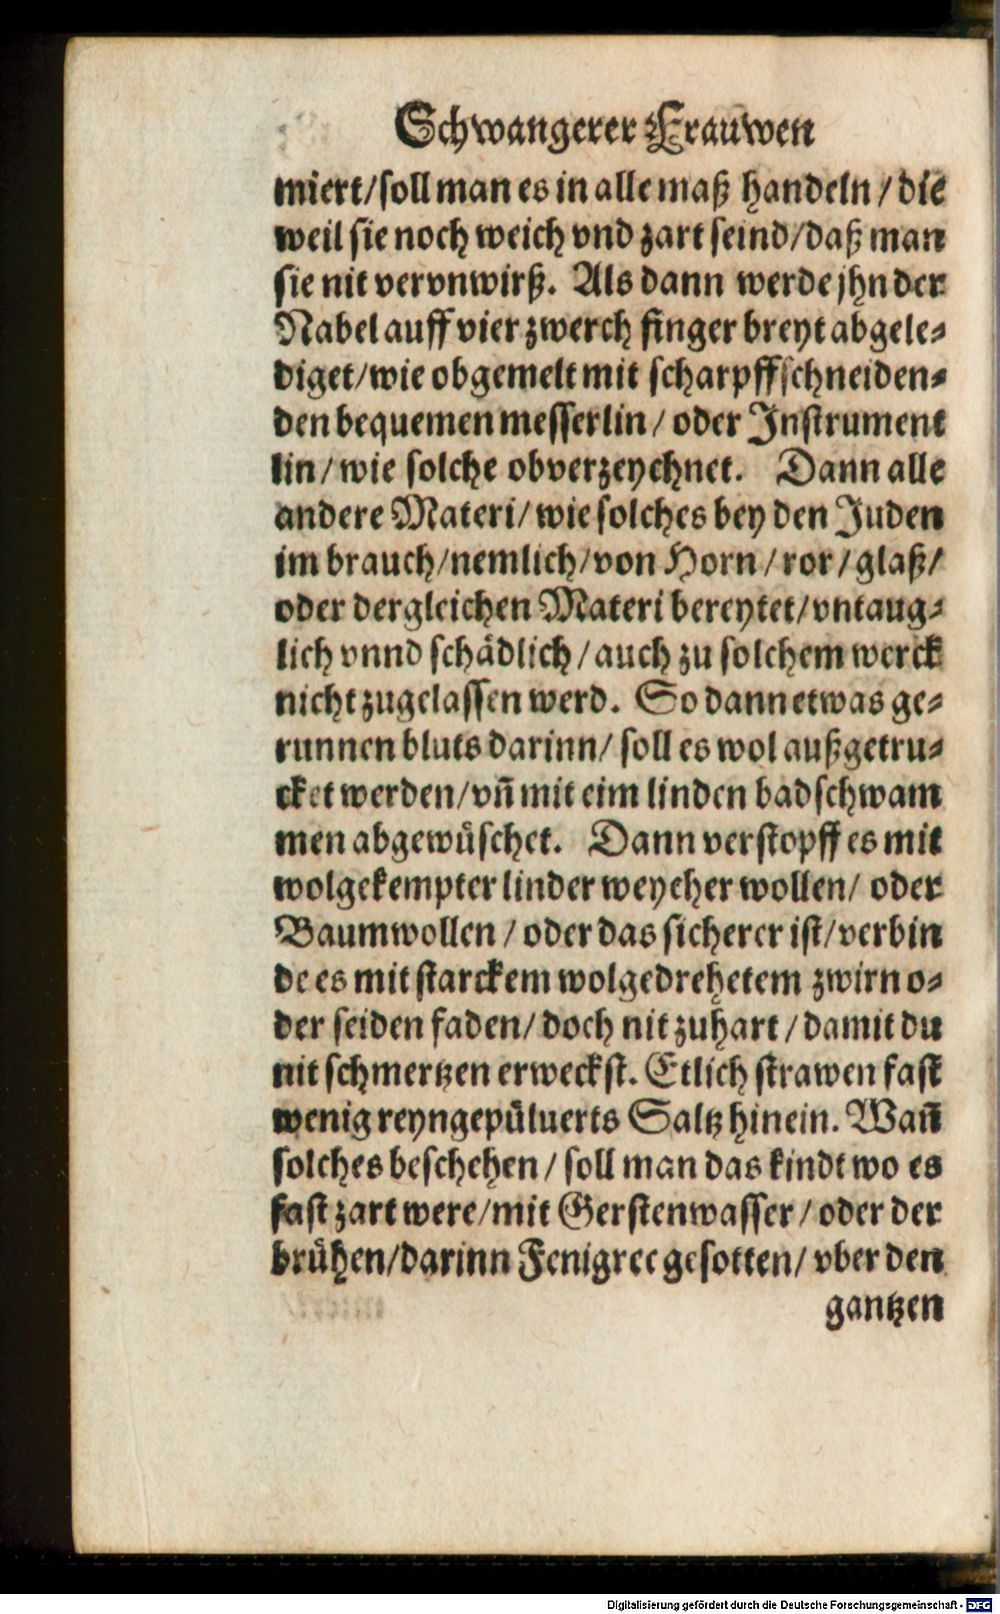 Schwangerer Frauwen
miert/soll man es in alle maß handeln/die
weil sie noch weich vnd zart seind/daß man
sie nit vervnwirß. Als dann werde jhn der
Nabel auff vier zwerch finger breyt abgele-
diget/wie obgemelt mit scharpffschneiden-
den bequemen messerlin/ oder Instrument
lin/wie solche obverzeychnet. Dann alle
andere Materi/wie solches bey den Juden
im brauch/nemlich/von Horn/ror/glaß/
oder dergleichen Materi bereytet/vntaug-
lich vnnd schådlich/auch zu solchem werck
nicht zugelassen werd. So dann etwas ge-
runnen bluts darinn/ soll es wol außgetru-
cket werden/vn̄ mit eim linden badschwam
men abgewůschet. Dann verstopff es mit
wolgekempter linder weycher wollen/ oder
Baumwollen/oder das sicherer ist/verbin
de es mit starckem wolgedrehetem zwirn o-
der seiden faden/doch nit zuhart/damit du
nit schmertzen erweckst. Etlich strawen fast
wenig reyngepůluerts Saltz hinein. Wan̄
solches beschehen/ soll man das kindt wo es
fast zart were/mit Gerstenwasser/oder der
brůhen/darinn Fenigrec gesotten/vber den
gantzen
Digitalisierung gefördert durch die Deutsche Forschungsgemeinschaft - DFG